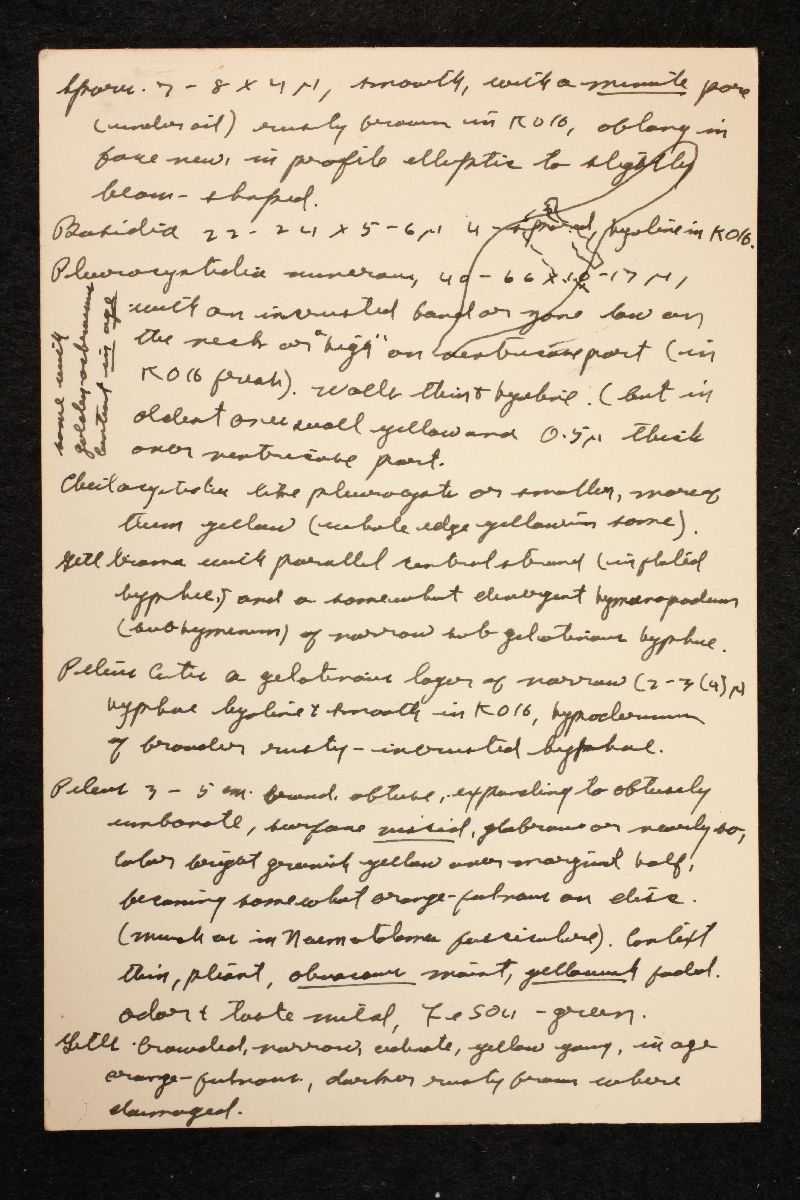 Spores 7 - 8 x 4 μ, smooth, with a minute pore
(under oil) rusty brown in KOH, oblong in
face view, in profile elliptic to slightly
bean-shaped.
Basidia 22 - 24 x 5 - 6 μ 4 - spored, hyaline in KOH.
Pleurocystidia numerous, 40 - 66 x 10 - 17 μ,
with an incrusted band or zone low on
the neck or "high" on ventricose part (in
KOH fresh). Walls thin & hyaline. (but in
oldest ones wall yellow and 0.5 μ thick
over ventricose part.
some with
golden
content in age
Cheilocystidia like pleurocysts or smaller, more of
them yellow (whole edge yellow in some).
Gill trama with parallel central strand (inflated
hyphae,) and a somewhat divergent hymenopodium
(subhymenium) of narrow subgelatinous hyphae.
Pileus cutis a gelatinous layer of narrow (2 - 3 (4) μ
hyphae hyaline & smooth in KOH, hypodermium
of broader rusty-incrusted hyphae.
Pileus 3 - 5 cm broad, obtuse, expanding to obtusely
umbonate, surface viscid, glabrous or nearly so,
color bright greenish yellow over marginal half,
becoming somewhat orange-fulvous on disc.
(much as in Naematoloma fasciculare). Context
thin, pliant, moist, yellowish faded.
odor & taste mild, FeSO4 - green.
Gills crowded, narrow, adnate, yellow young, in age
orange-fulvous, darker rusty brown where
damaged.